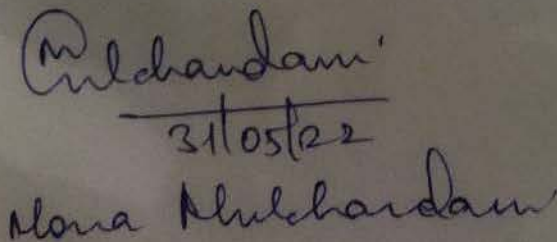 Mulchandani
31/05/22
Mona Mulchandani